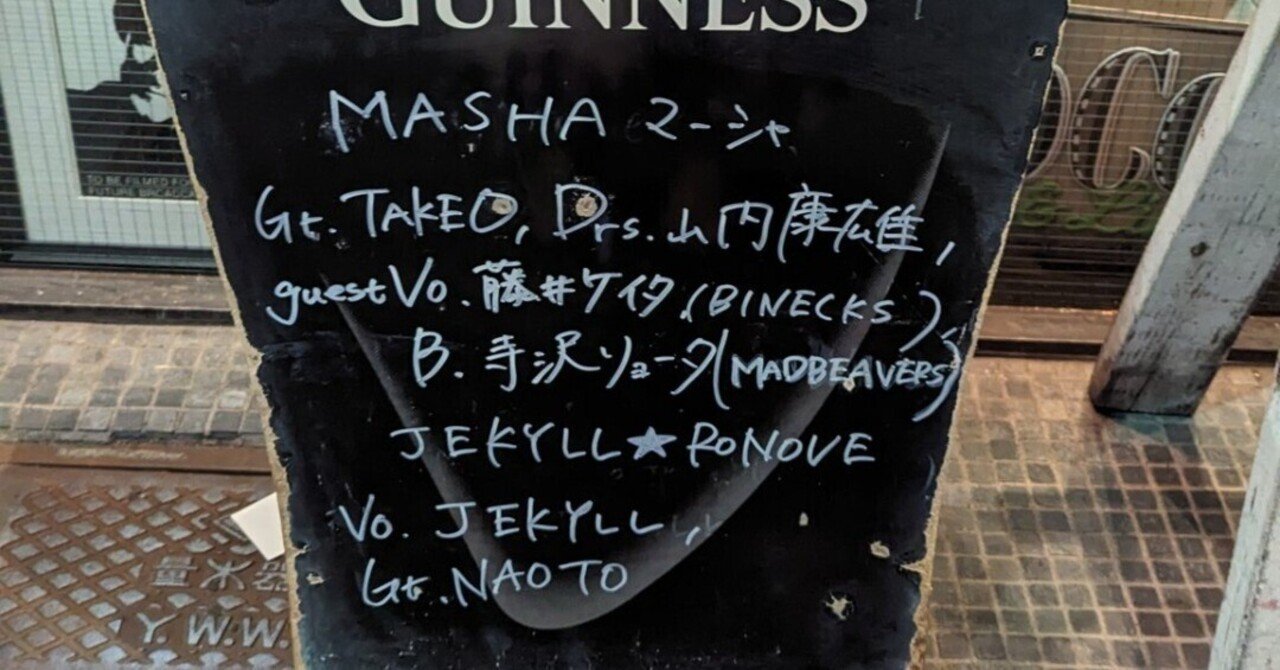 GUINNESS
MASHA マーシャ
Gt. TAKEO, Drs.山内康雄,
guest Vo. 藤井ケイタ (BINECKS),
B. 寺沢リョータ (MADBEAVERS)
JEKYLL★RONOVE
Vo. JEKYLL,
Gt. NAOTO
TO BE FILMED FOR
FUTURE
Y.W.W.